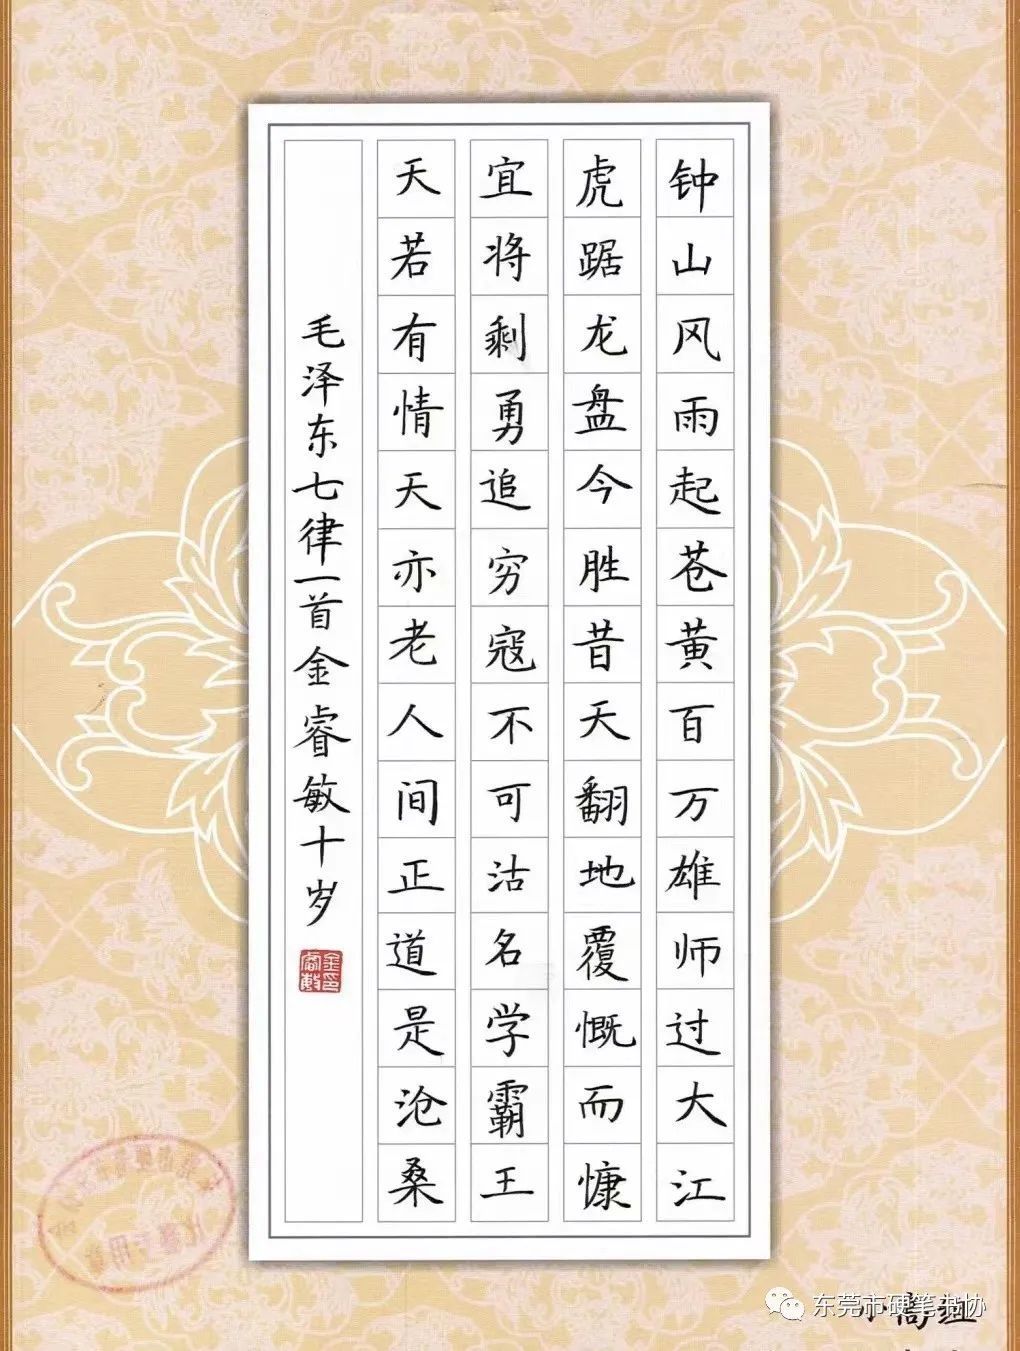 钟山风雨起苍黄百万雄师过大江
虎踞龙盘今胜昔天翻地覆慨而慷
宜将剩勇追穷寇不可沽名学霸王
天若有情天亦老人间正道是沧桑
毛泽东七律一首金睿敏十岁
金睿敏印
东莞市硬笔书协